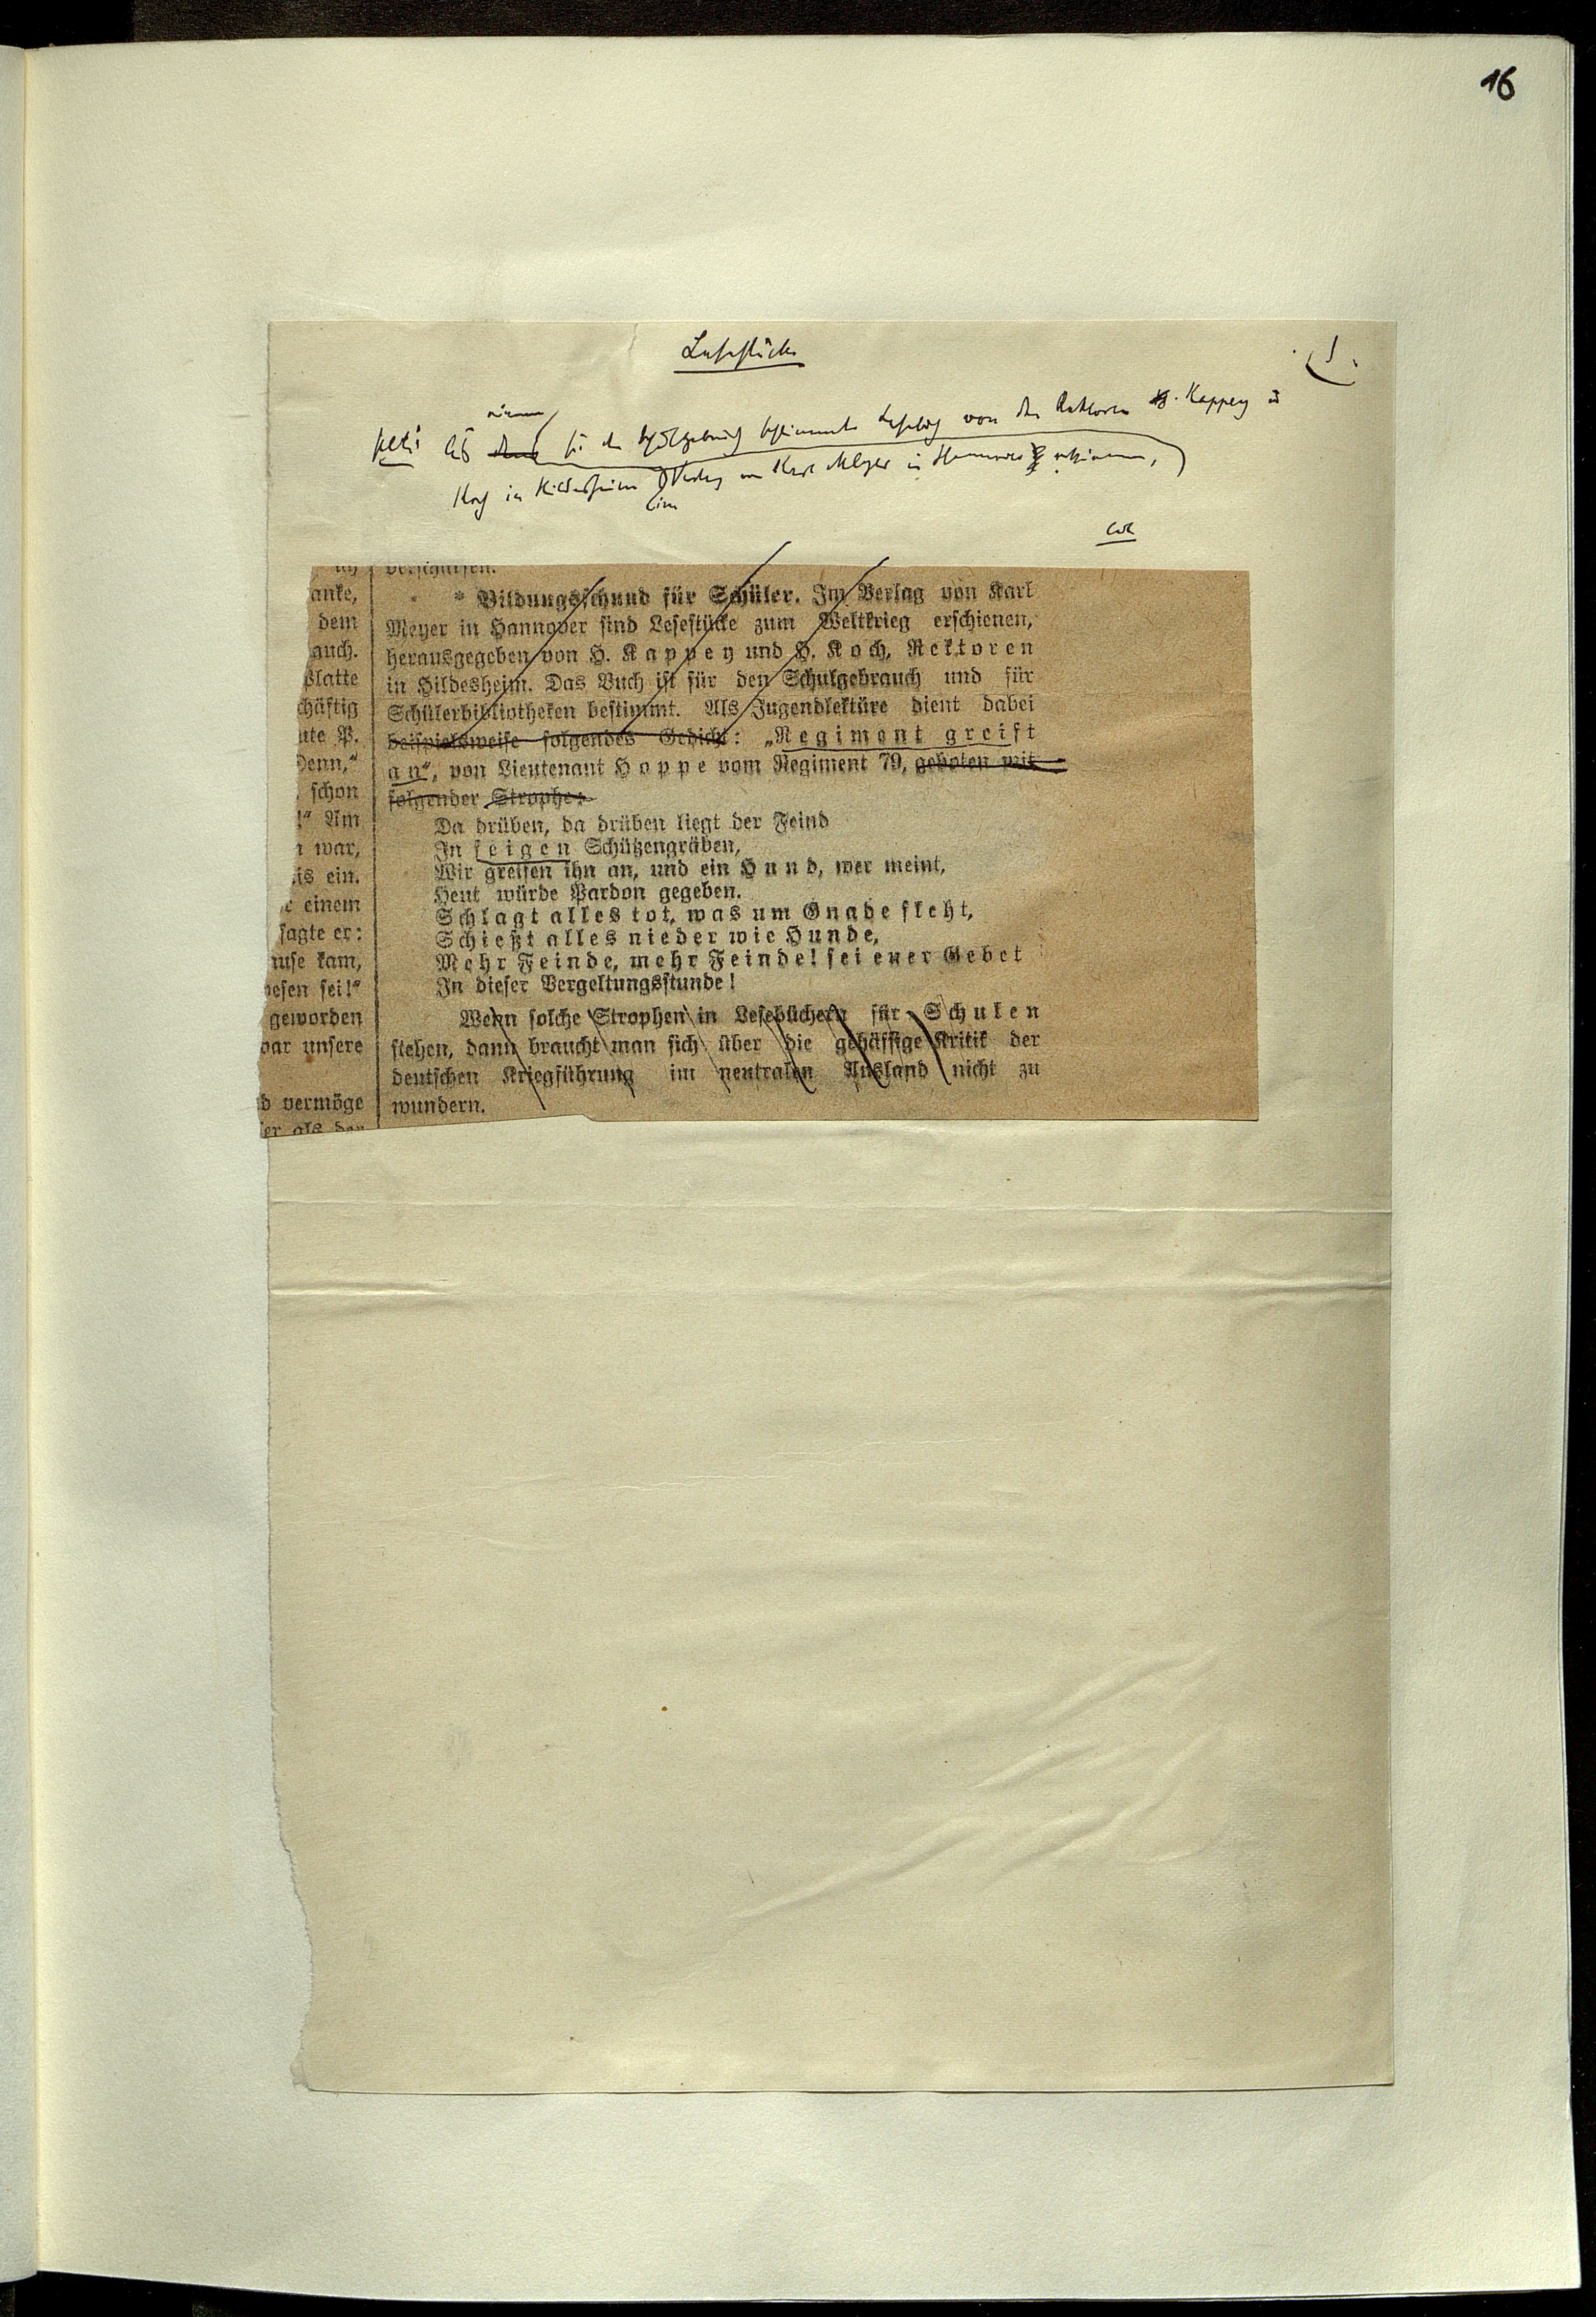 16
Lesestücke
1.
einem
aus dem für den Schulgebrauch bestimmte Lesebuch von den Rektoren H. Kappey u
Koch in Hildesheim Verlag von Karl Meyer in Hannover erschienen,
im
verschärfen.
* Bildungsschund für Schüler. Im Verlag von Karl
Meyer in Hannover sind Lesestücke zum Weltkrieg erschienen,
herausgegeben von H. Kappey und H. Koch, Rektoren
in Hildesheim. Das Buch ist für den Schulgebrauch und für
Schülerbibliotheken bestimmt. Als Jugendlektüre dient dabei
beispielsweise folgendes Gedicht: „Regiment greift
an“, von Lieutenant Hoppe vom Regiment 79, geboten mit
folgender Strophe:
Da drüben, da drüben liegt der Feind
In feigen Schützengräben,
Wir greifen ihn an, und ein Hund, wer meint,
Heut würde Pardon gegeben.
Schlagt alles tot, was um Gnade fleht,
Schießt alles nieder wie Hunde,
Mehr Feinde, mehr Feinde! sei euer Gebet
In dieser Vergeltungsstunde!
Wenn solche Strophen in Lesebüchern für Schulen
stehen, dann braucht man sich über die gehässige Kritik der
deutschen Kriegführung im neutralen Ausland nicht zu
wundern.
anke,
dem
auch.
platte
chäftig
ute P.
Denn,“
schon
!“ Am
war,
is ein.
einem
sagte er:
use kam,
wesen sei!“
geworden
war unsere
d vermöge
er als der